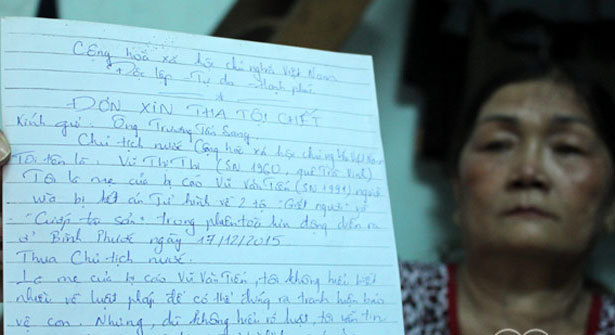 Cộng hòa xã hội chủ nghĩa Việt Nam
Độc lập - Tự do - Hạnh phúc
ĐƠN XIN THA TỘI CHẾT
Kính gửi: Ông Trương Tấn Sang
Chủ tịch nước Cộng hòa xã hội chủ nghĩa Việt Nam
Tôi tên là: Vũ Thị Thi (SN 1960, quê Trà Vinh)
Tôi là mẹ của bị cáo Vũ Văn Tiến (SN 1991) người
vừa bị kết án Tử hình về 2 tội "Giết người" và
"Cướp tài sản" trong phiên tòa lưu động diễn ra
ở Bình Phước ngày 17/12/2015
Thưa Chủ tịch nước.
Là mẹ của bị cáo Vũ Văn Tiến, tôi không hiểu biết
nhiều về luật pháp để có thể đứng ra tranh luận bảo
vệ con. Nhưng, dù không hiểu về luật, tôi vẫn tin